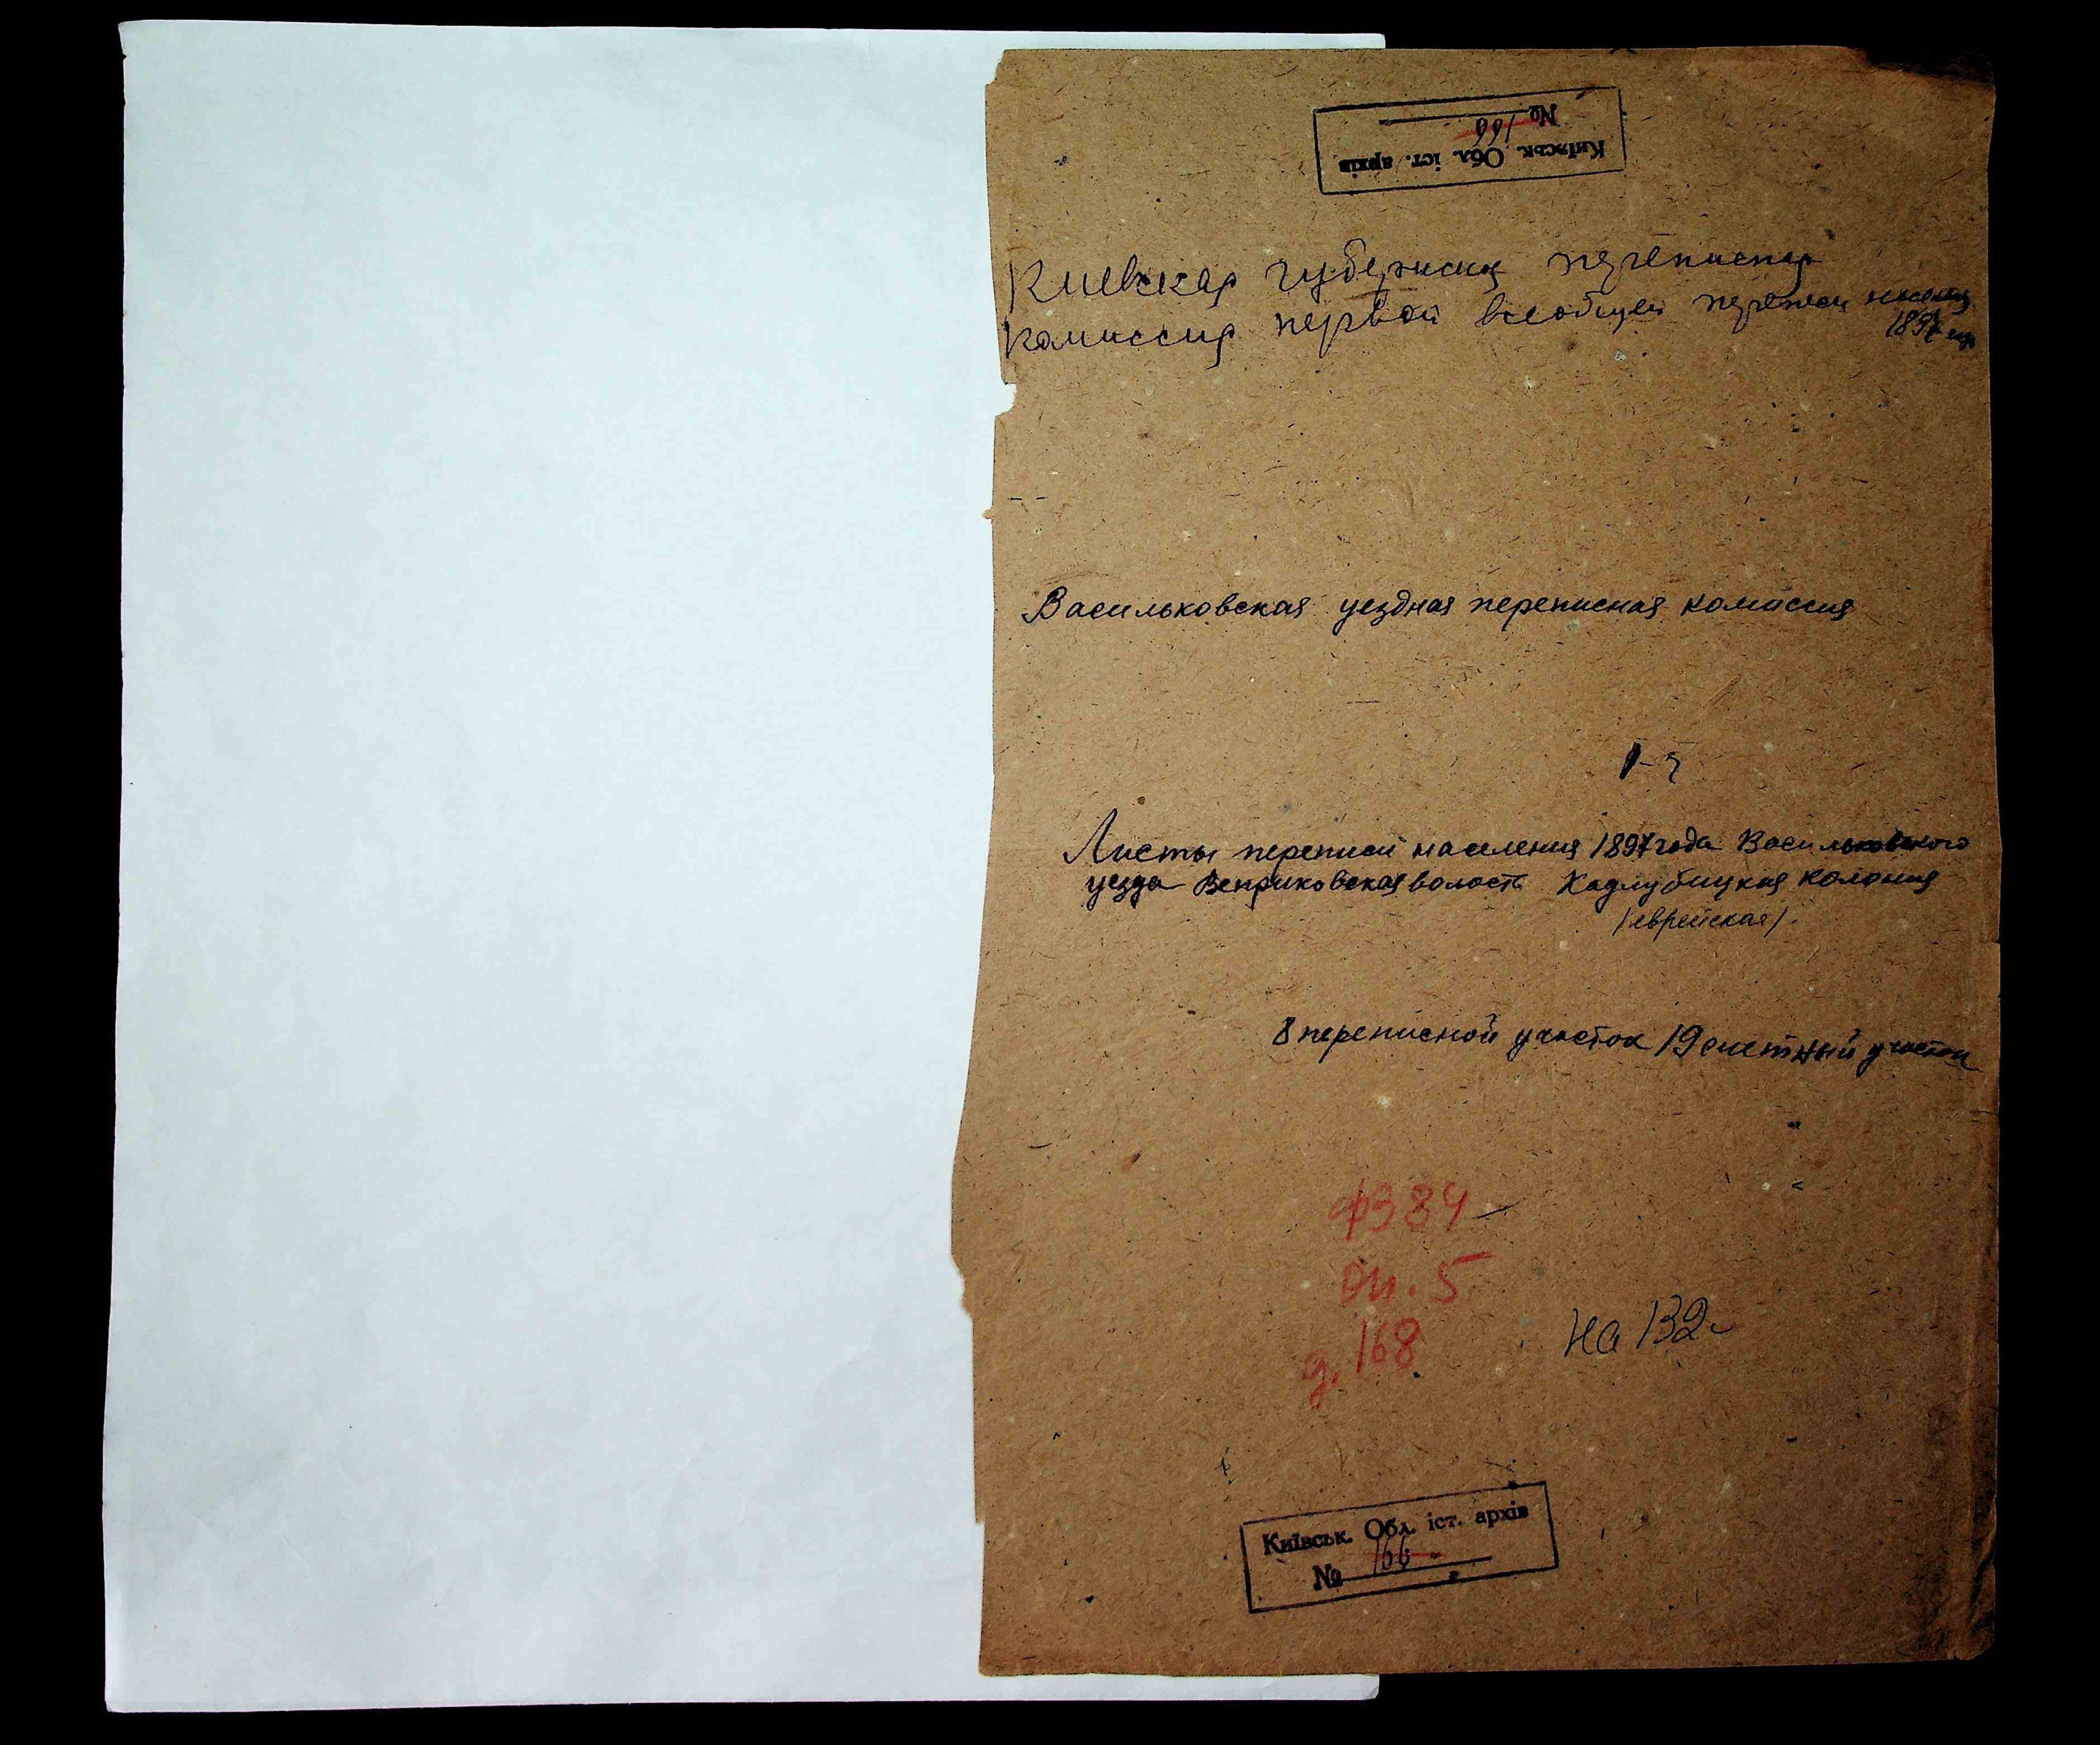 Київськ. Обл. іст. архів
№ 166
Киевская губернская переписная
комиссия первой всеобщей переписи
1897
Васильковская уездная переписная комиссия
Листы переписи населения 1897 года Васильковского
уезда Веприковская волость Кадлубицкая колония
/еврейская/.
8 переписной участок 19 счетный участок
ф 384
оп. 5
д. 168
на 132
Київськ. Обл. іст. архів
№ 166